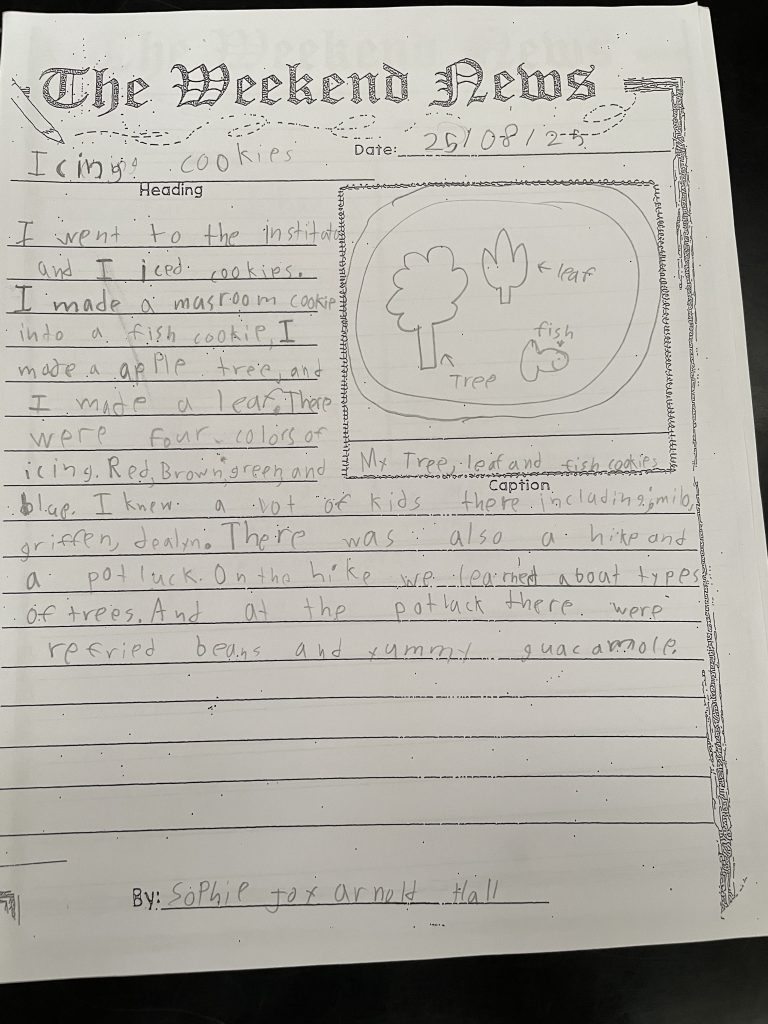 The Weekend News
Icing cookies
Date: 25/08/25
Heading
I went to the institute
and I iced cookies.
I made a masroom cookie
into a fish cookie, I
made a apple tree, and
I made a leaf. There
were four colors of
icing. Red, Brown, green, and
blue. I knew a lot of kids there including, milo,
griffen, dealyn. There was also a hike and
a potluck. On the hike we learned about types
of trees. And at the potluck there were
refried beans and yummy guacamole.
leaf
fish
Tree
My Tree, leaf and fish cookies
Caption
By: Sophie Joy arnold Hall